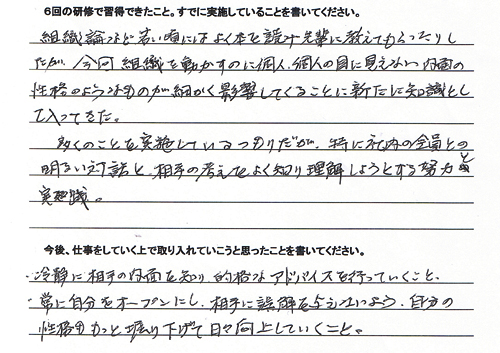 6回の研修で習得できたこと。すでに実施していることを書いてください。
組織論など若い頃にはよく本を読み先輩に教えてもらったりし
たが、今回組織を動かすのに個人、個人の目に見えない内面の
性格のようなものが細かく影響してくることに新たに知識とし
て入ってきた。
多くのことを実施しているつもりだが、特に社内の全員との
明るい対話と、相手の考えをよく知り理解しようとする努力を
実践。
今後、仕事をしていく上で取り入れていこうと思ったことを書いてください。
・冷静に相手の内面を知り、的格なアドバイスを行っていくこと、
・常に自分をオープンにし、相手に誤解を与えないよう、自分の
性格ももっと掘り下げて日々向上していくこと。